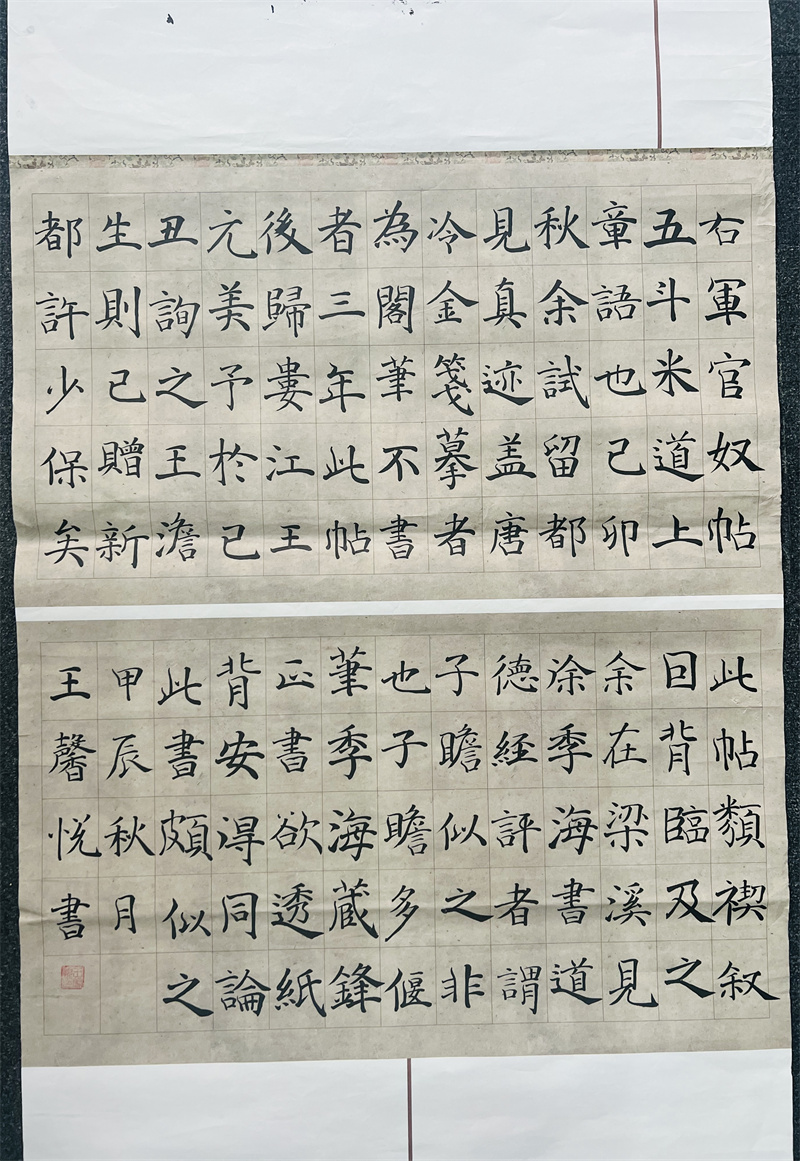 右軍官奴帖
五斗米道上
章語也己卯
秋余試留都
見真迹盖唐
冷金箋摹者
為閣筆不書
者三年此帖
後歸婁江王
元美予於己
丑詢之王澹
生則已贈新
都許少保矣
此帖類禊叙
回背臨及之
余在梁溪見
涂季海書道
德経評者謂
子瞻似之非
也子瞻多偃
筆季海蔵鋒
正書欲透紙
背安得同論
此書頗似之
甲辰秋月
王馨悅書